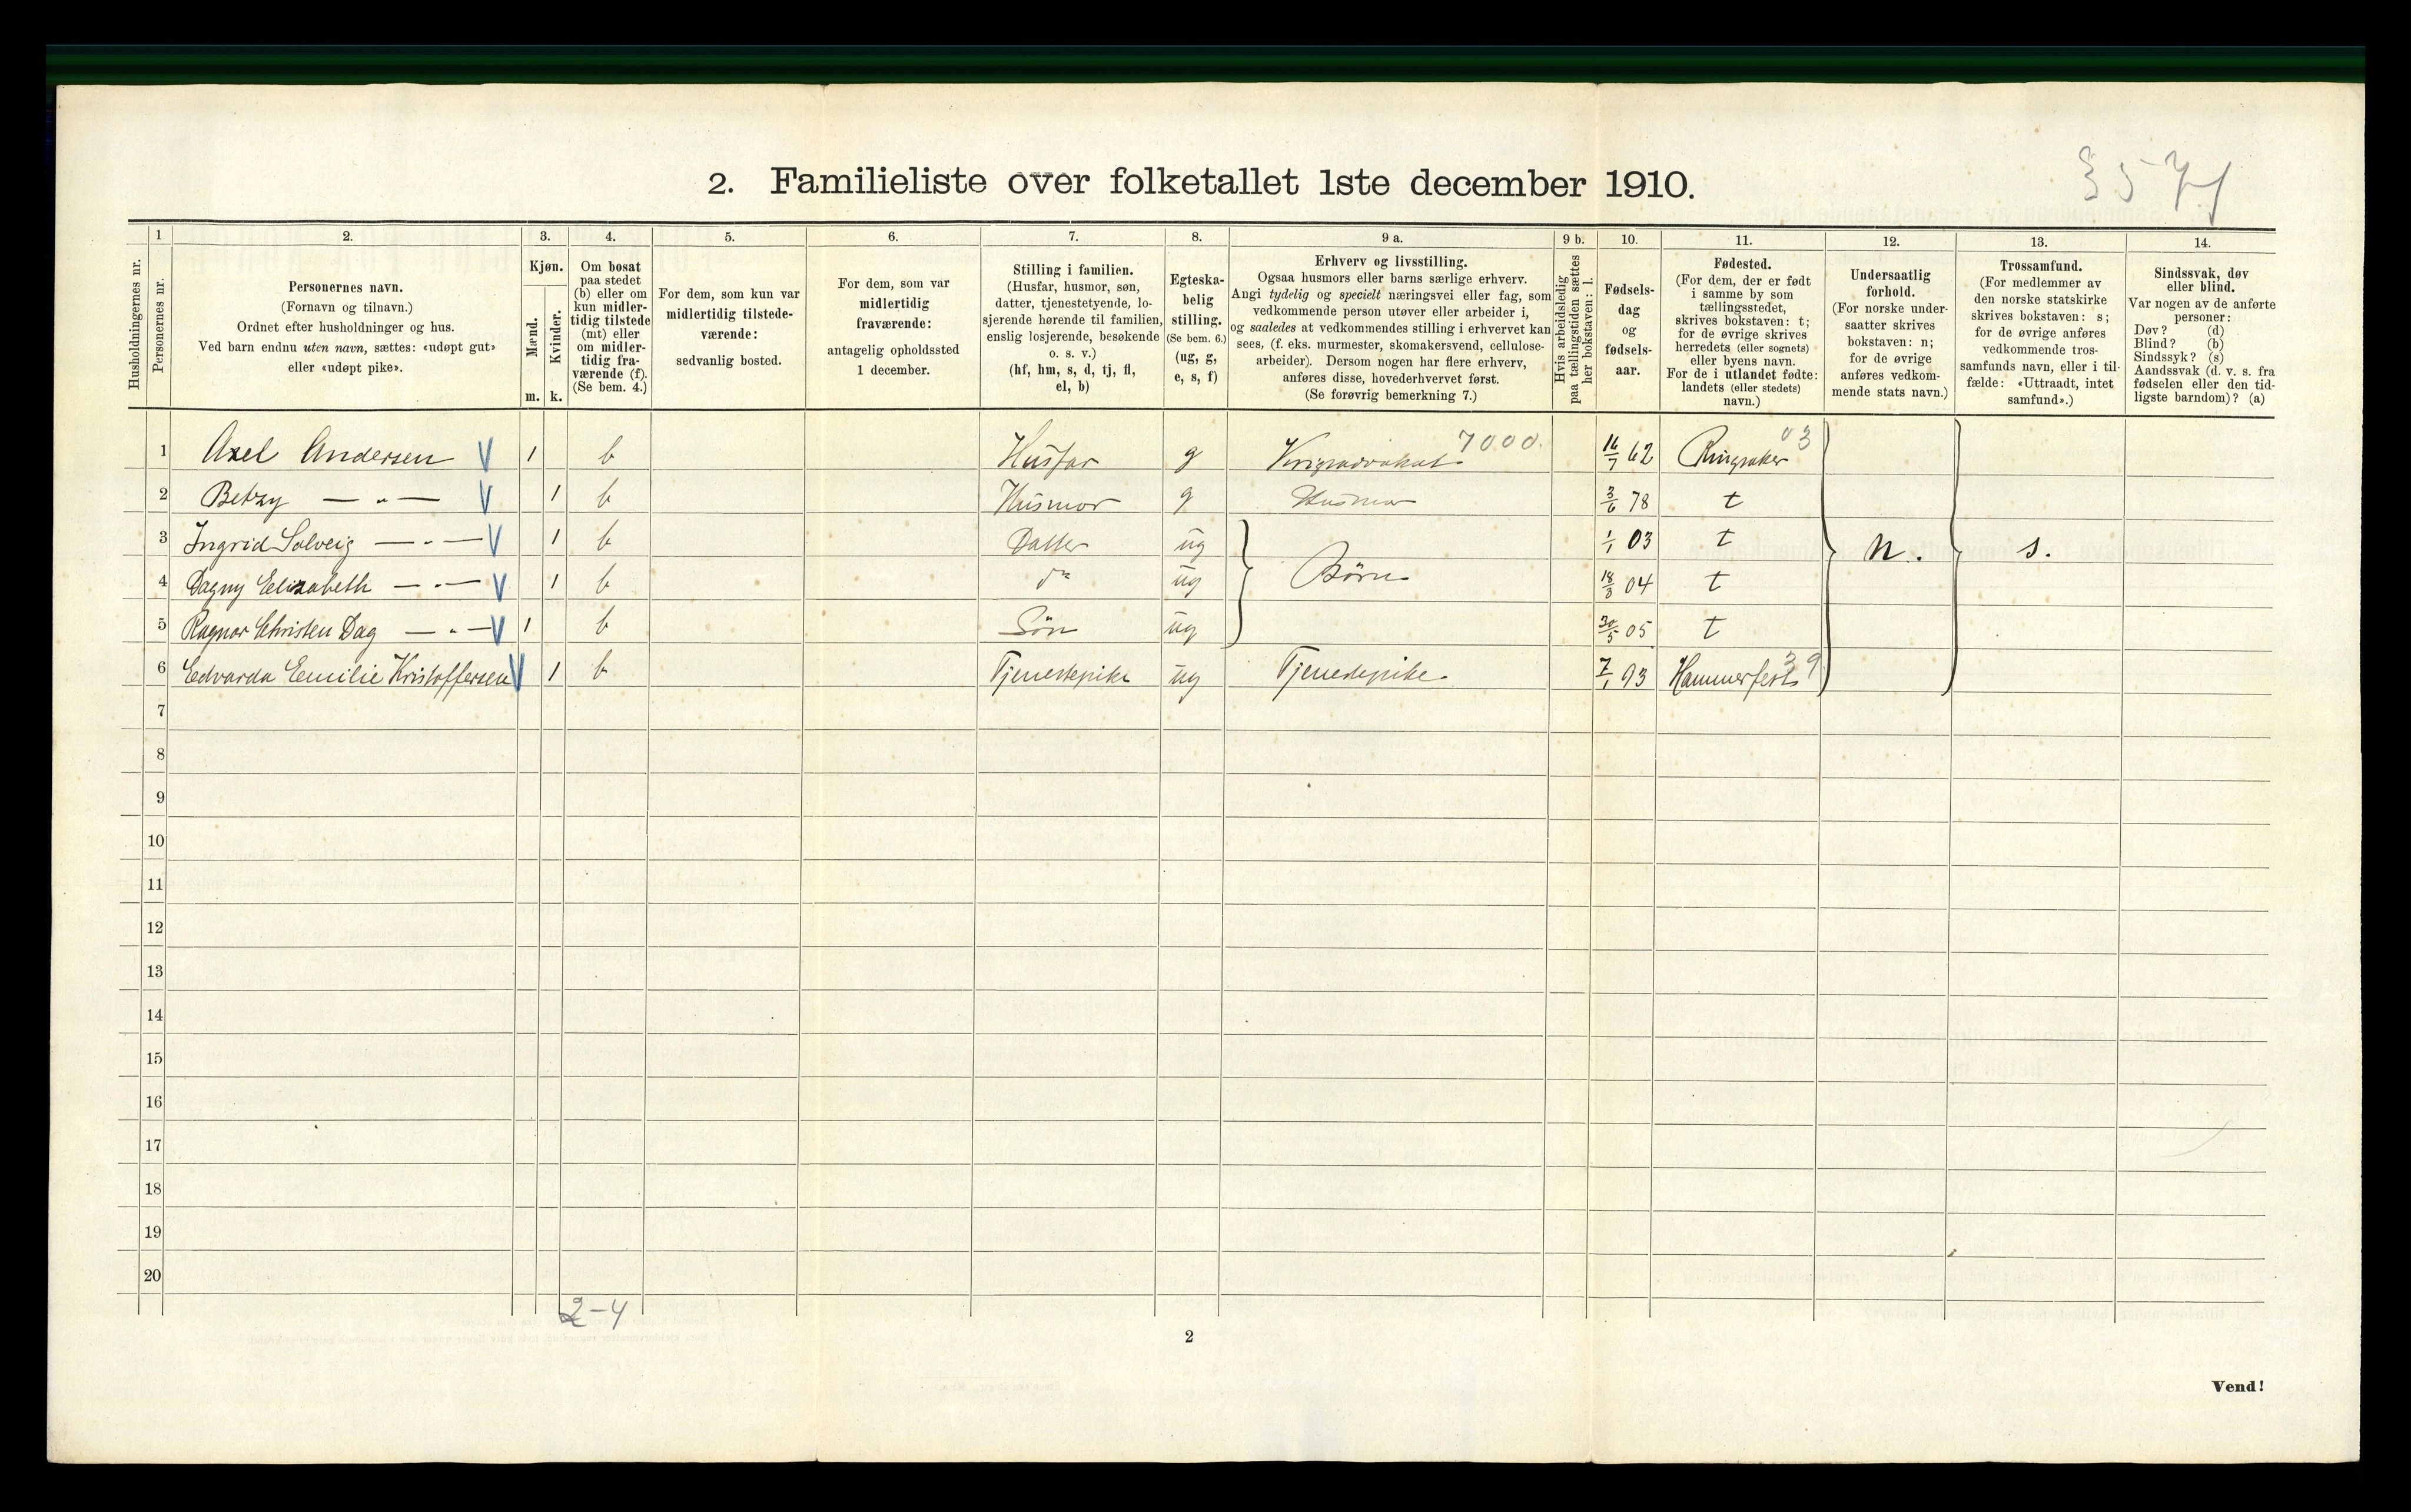 3571
2. Familieliste over folketallet 1ste december 1910.
Husholdningernes nr.
1 Personernes nr.
2. Personernes navn. (Fornavn og tilnavn.) Ordnet efter husholdninger og hus. Ved barn endnu uten navn, sættes: «udøpt gut» eller «udøpt pike».
3. Kjøn. Mænd. m. Kvinder. k.
4. Om bosat paa stedet (b) eller om kun midlertidig tilstede (mt) eller om midlertidig fraværende (f). (Se bem. 4.)
5. For dem, som kun var midlertidig tilstedeværende: sedvanlig bosted.
6. For dem, som var midlertidig fraværende: antagelig opholdssted 1 december.
7. Stilling i familien. (Husfar, husmor, søn, datter, tjenestetyende, losjerende hørende til familien, enslig losjerende, besøkende o. s. v.) (hf, hm, s, d, tj, fl, el, b)
8. Egteskabelig stilling. (Se bem. 6.) (ug, g, e, s, f)
9 a. Erhverv og livsstilling. Ogsaa husmors eller barns særlige erhverv. Angi tydelig og specielt næringsvei eller fag, som vedkommende person utøver eller arbeider i, og saaledes at vedkommendes stilling i erhvervet kan sees, (f. eks. murmester, skomakersvend, cellulosearbeider). Dersom nogen har flere erhverv, anføres disse, hovederhvervet først. (Se forøvrig bemerkning 7.)
9 b. Hvis arbeidsledig paa tællingstiden sættes her bokstaven: l.
10. Fødselsdag og fødselsaar.
11. Fødested. (For dem, der er født i samme by som tællingsstedet, skrives bokstaven: t; for de øvrige skrives herredets (eller sognets) eller byens navn. For de i utlandet fødte: landets (eller stedets) navn.)
12. Undersaatlig forhold. (For norske undersaatter skrives bokstaven: n; for de øvrige anføres vedkommende stats navn.)
13. Trossamfund. (For medlemmer av den norske statskirke skrives bokstaven: s; for de øvrige anføres vedkommende trossamfunds navn, eller i tilfælde: «Uttraadt, intet samfund».)
14. Sindssvak, døv eller blind. Var nogen av de anførte personer: Døv? (d) Blind? (b) Sindssyk? (s) Aandssvak (d. v. s. fra fødselen eller den tidligste barndom)? (a)
1 Axel Andersen V 1 b Husfar g Krigsadvokat 7000. 16/7 62 Ringsaker 03
2 Betzy — „ — V 1 b Husmor g Husmor 3/6 78 t
3 Ingrid Solveig — „ — V 1 b Datter ug 1/1 03 t n. s.
4 Dagny Elizabeth — „ — V 1 b do ug Børn 18/3 04 t
5 Ragnar Christen Dag — „ — V 1 b Søn ug 30/5 05 t
6 Edvarda Emilie Kristoffersen V 1 b Tjenestepike ug Tjenestepike 7/1 93 Hammerfest 39
7
8
9
10
11
12
13
14
15
16
17
18
19
20
2-4
2
Vend!